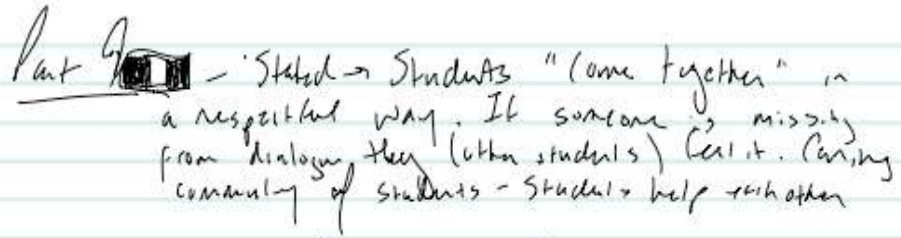 Part - Stated → Students "Come together" in
a respectful way. If someone is missing
from dialogue, they (other students) feel it. Caring
community of students - Students help each other